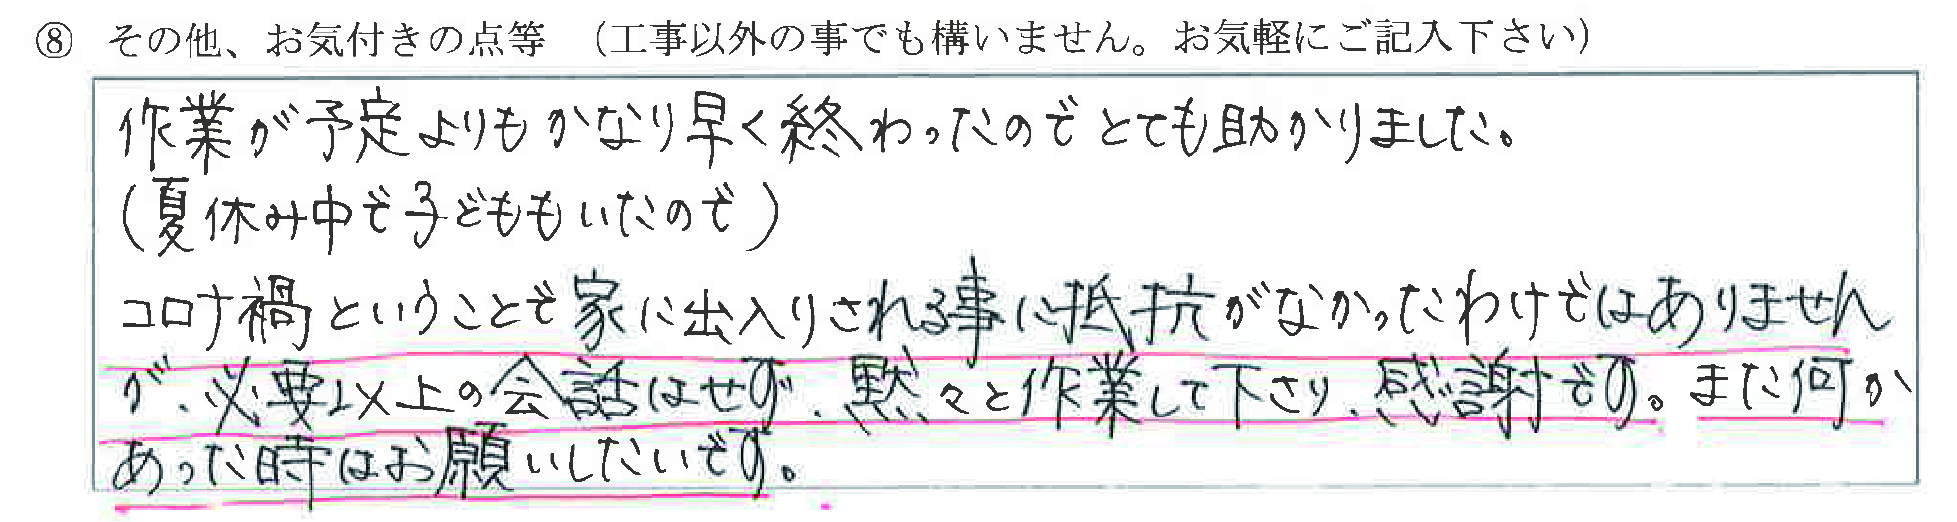 ⑧ その他、お気付きの点等 （工事以外の事でも構いません。お気軽にご記入下さい）
作業が予定よりもかなり早く終わったのでとても助かりました。
（夏休み中で子どももいたので）
コロナ禍ということで家に出入りされる事に抵抗がなかったわけではありません
が、必要以上の会話はせず、黙々と作業して下さり、感謝です。また何か
あった時はお願いしたいです。